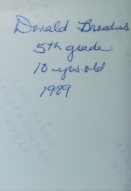 Donald Breaus
5th grade
10 yrs. old
1989